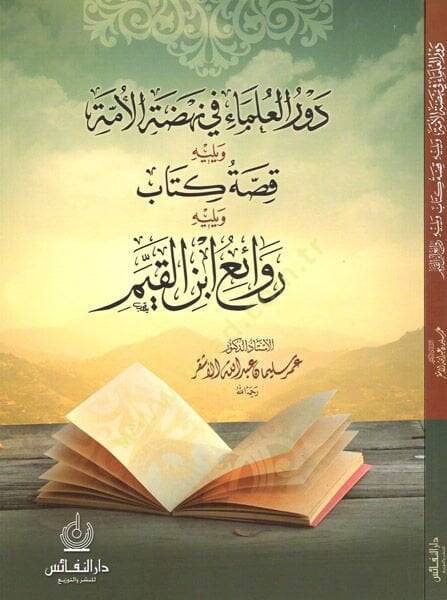 دَوْرُ العُلَمَاءِ فِي نَهْضَةِ الأُمَّةِ
وَيَلِيْهِ
قِصَّةُ كِتَابٍ
وَيَلِيْهِ
رَوَائِعُ ابْنِ القَيِّمِ
الأستاذ الدكتور
عمر سليمان عبد الله الأشقر
رحمه الله
دار النفائس
للنشر والتوزيع
دَوْرُ العُلَمَاءِ فِي نَهْضَةِ الأُمَّةِ وَيَلِيْهِ قِصَّةُ كِتَابٍ وَيَلِيْهِ رَوَائِعُ ابْنِ القَيِّمِ
عمر سليمان عبد الله الأشقر
دار النفائس